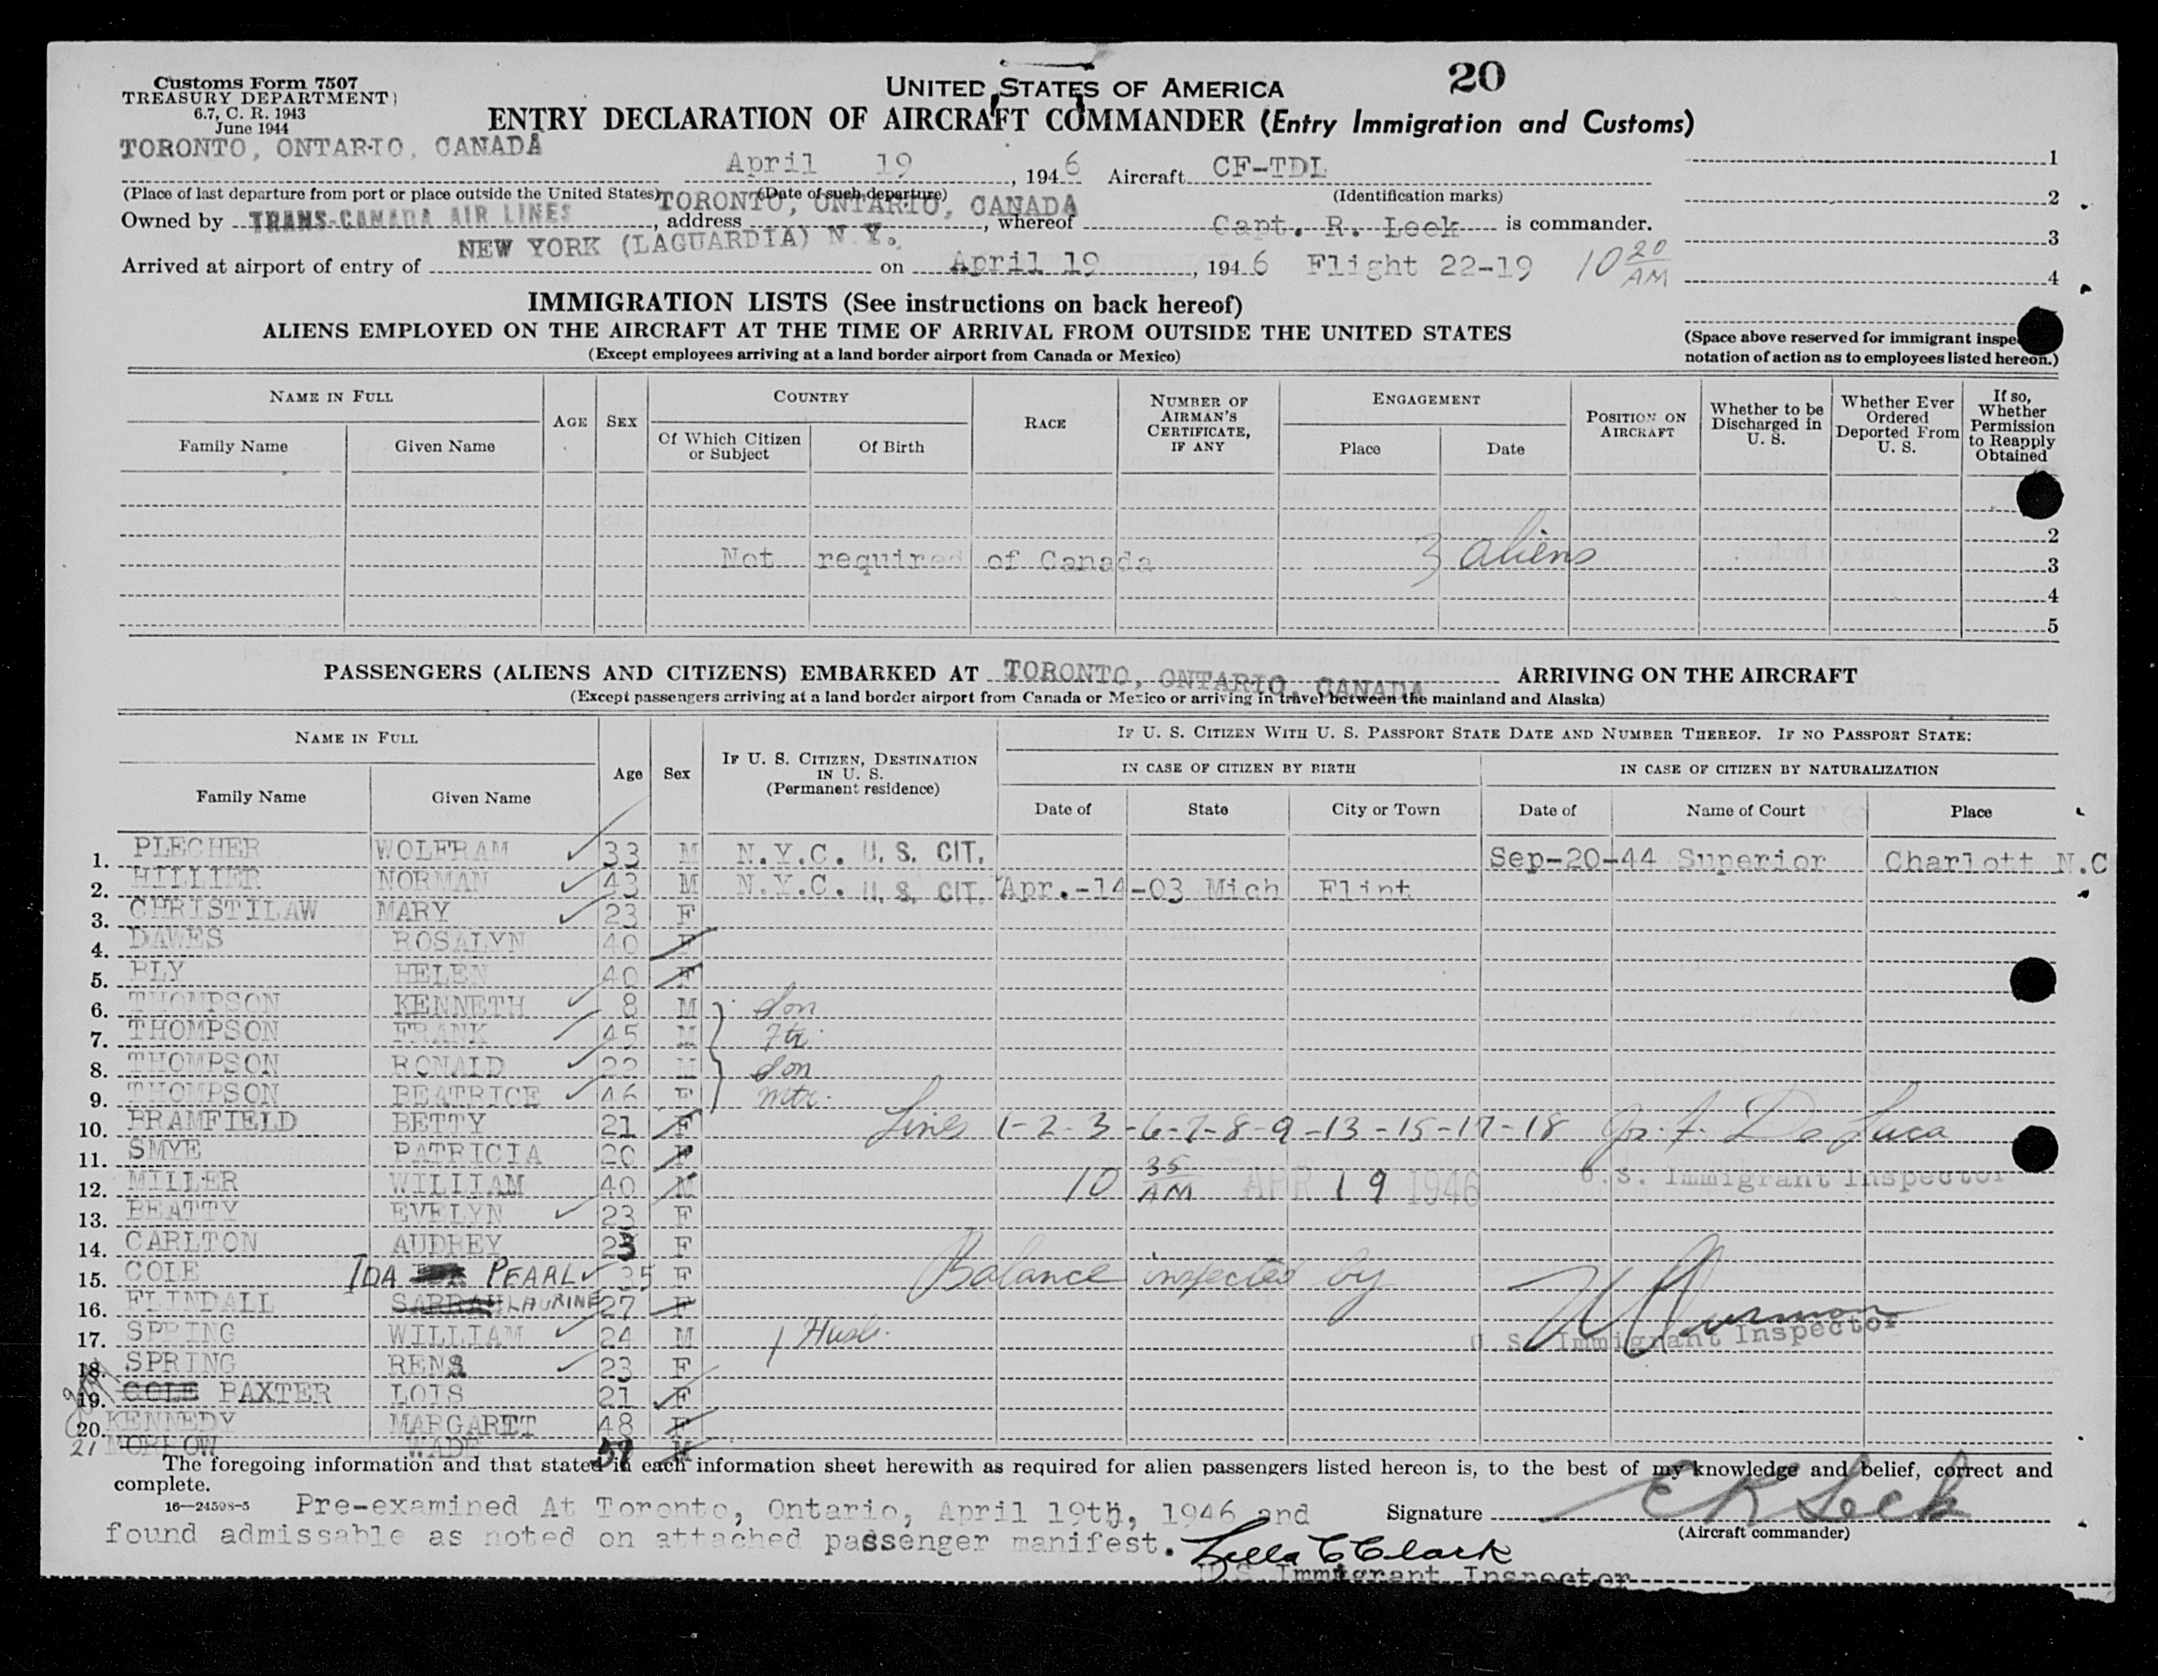 Customs Form 7507
TREASURY DEPARTMENT
6.7, C. R. 1943
June 1944
UNITED STATES OF AMERICA
20
ENTRY DECLARATION OF AIRCRAFT COMMANDER (Entry Immigration and Customs)
TORONTO, ONTARIO, CANADA April 19, 1946 Aircraft CF-TDL
1
(Place of last departure from port or place outside the United States) (Date of such departure) (Identification marks)
2
Owned by TRANS-CANADA AIR LINES, address TORONTO, ONTARIO, CANADA, whereof Capt. R. Leek is commander.
3
Arrived at airport of entry of NEW YORK (LAGUARDIA) N.Y. on April 19, 1946 Flight 22-19 10 20 AM
4
IMMIGRATION LISTS (See instructions on back hereof)
ALIENS EMPLOYED ON THE AIRCRAFT AT THE TIME OF ARRIVAL FROM OUTSIDE THE UNITED STATES
(Except employees arriving at a land border airport from Canada or Mexico)
(Space above reserved for immigrant inspe
notation of action as to employees listed hereon.)
NAME IN FULL
Family Name Given Name
AGE SEX
COUNTRY
Of Which Citizen or Subject Of Birth
RACE
NUMBER OF AIRMAN'S CERTIFICATE, IF ANY
ENGAGEMENT
Place Date
POSITION ON AIRCRAFT
Whether to be Discharged in U. S.
Whether Ever Ordered Deported From U. S.
If so, Whether Permission to Reapply Obtained
2
Not required of Canada 3 aliens 3
4
5
PASSENGERS (ALIENS AND CITIZENS) EMBARKED AT TORONTO, ONTARIO, CANADA ARRIVING ON THE AIRCRAFT
(Except passengers arriving at a land border airport from Canada or Mexico or arriving in travel between the mainland and Alaska)
NAME IN FULL
Family Name Given Name
Age Sex
IF U. S. CITIZEN, DESTINATION IN U. S. (Permanent residence)
IF U. S. CITIZEN WITH U. S. PASSPORT STATE DATE AND NUMBER THEREOF. IF NO PASSPORT STATE:
IN CASE OF CITIZEN BY BIRTH IN CASE OF CITIZEN BY NATURALIZATION
Date of State City or Town Date of Name of Court Place
1. PLECHER WOLFRAM 33 M N.Y.C. U. S. CIT. Sep-20-44 Superior Charlott N.C
2. HILLIER NORMAN 43 M N.Y.C. U. S. CIT. Apr.-14-03 Mich Flint
3. CHRISTILAW MARY 23 F
4. DAWES ROSALYN 40 F
5. BLY HELEN 40 F
6. THOMPSON KENNETH 8 M Son
7. THOMPSON FRANK 45 M Ftr.
8. THOMPSON RONALD 22 M Son
9. THOMPSON BEATRICE 46 F Mtr.
10. BRAMFIELD BETTY 21 F Lines 1-2-3-6-7-8-9-13-15-17-18 Jos. A. De Luca
11. SMYE PATRICIA 20 F
12. MILLER WILLIAM 40 M 10 35 AM APR 19 1946 U.S. Immigrant Inspector
13. BEATTY EVELYN 23 F
14. CARLTON AUDREY 23 F
15. COLE IDA PEARL 35 F Balance inspected by
16. FLINDALL SARRAH LAURINE 27 F
17. SPRING WILLIAM 24 M Husb. U.S. Immigrant Inspector
18. SPRING RENA 23 F
19. COLE BAXTER LOIS 21 F
20. KENNEDY MARGARET 48 F
21 MORROW WADE 57 M
The foregoing information and that stated in each information sheet herewith as required for alien passengers listed hereon is, to the best of my knowledge and belief, correct and
complete.
16—24598-5 Pre-examined At Toronto, Ontario, April 19th, 1946 and Signature E R Leek
found admissable as noted on attached passenger manifest. Lella C Clark (Aircraft commander)
U.S. Immigrant Inspector